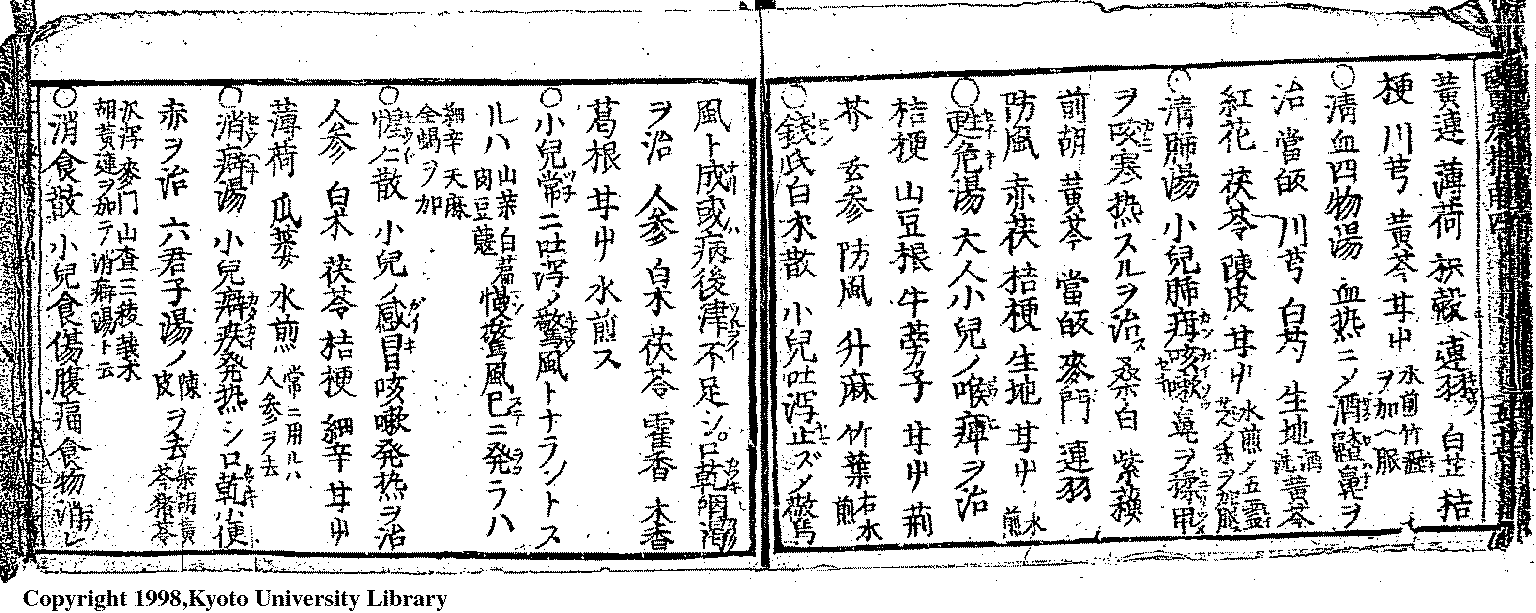 黄連 薄荷 枳殻 連翹 白芷 桔
梗 川芎 黄芩 甘中 水煎竹瀝ヲ加ヘ服
○清血四物湯 血熱ニメ酒齄鼻ヲ
治 當皈 川芎 白芍 生地酒洗 黄芩
紅花 茯苓 陳皮 甘中 水煎メ五霊芝ノ末ヲ加服
○清肺湯 小兒肺疳咳嗽鼻ヲ 甲
ヲ咳寒熱スルヲ治ス 桑白 紫蘓
前胡 黄芩 當皈 麥門 連翹
防風 赤茯 桔梗 生地 甘中 水煎
○甦危湯 大人小兒ノ喉痺ヲ治
桔梗 山豆根 牛蒡子 甘中 荊
芥 玄参 防風 升麻 竹葉 右水煎
○錢氏白朮散 小兒吐瀉止ズメ驚
風ト成或病後津不足シ口乾咽渇
ヲ治 人参 白朮 茯苓 霍香 木香
葛根 甘中 水煎ス
○小兒常ニ吐瀉メ驚風トナラントス
ルハ 山薬 白扁豆 肉豆蔲 慢驚風已ニ発ラハ
細辛 天麻 全蝎ヲ加
○惺〻散 小兒ノ感冒咳嗽発熱ヲ治
人参 白朮 茯苓 桔梗 細辛 甘中
薄荷 瓜蔞 水煎 常ニ用ルハ人参ヲ去
○消癖湯 小兒癖疾発熱シ口乾小便
赤ヲ治 六君子湯ノ陳皮ヲ去 柴胡 黄芩 猪苓
沢瀉 麥門 山査 三稜 莪朮 胡黄連ヲ加ヲ消癖湯ト云
○消食散 小兒食傷腹痛食物消レ
Copyright 1998,Kyoto University Library